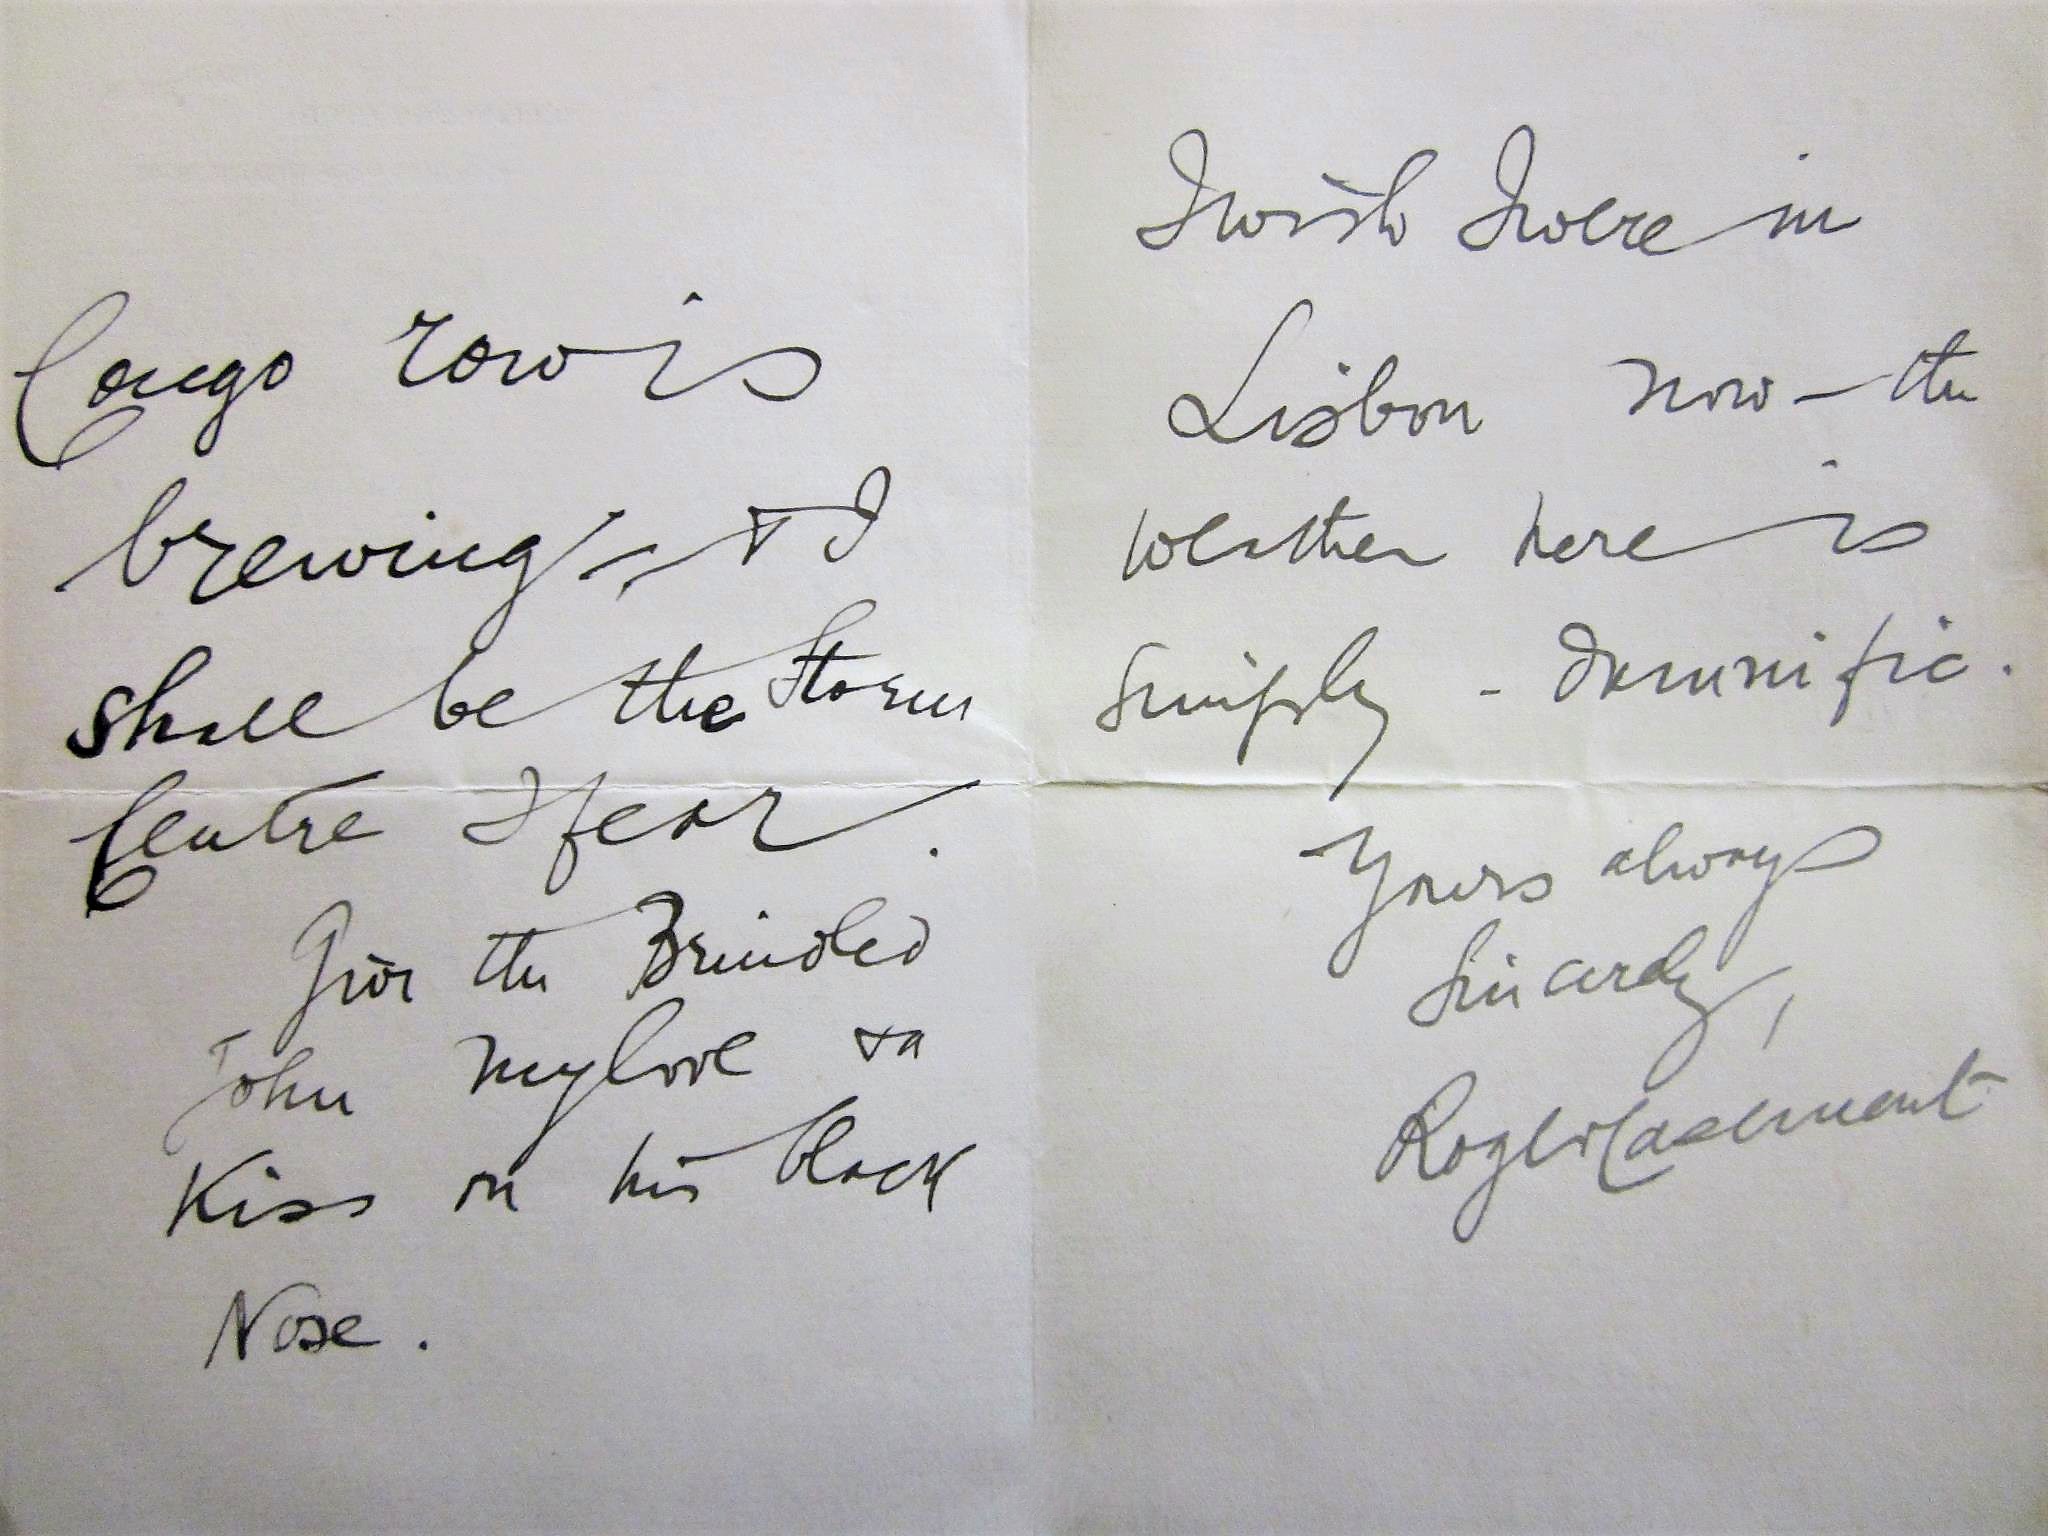 Congo row is
brewing - & I
shall be the Storm
Centre I fear.
Give the Brindled
John my love & a
Kiss on his black
Nose.
I wish I were in
Lisbon now - the
weather here is
simply - damnific.
Yours always
Sincerely,
Roger Casement